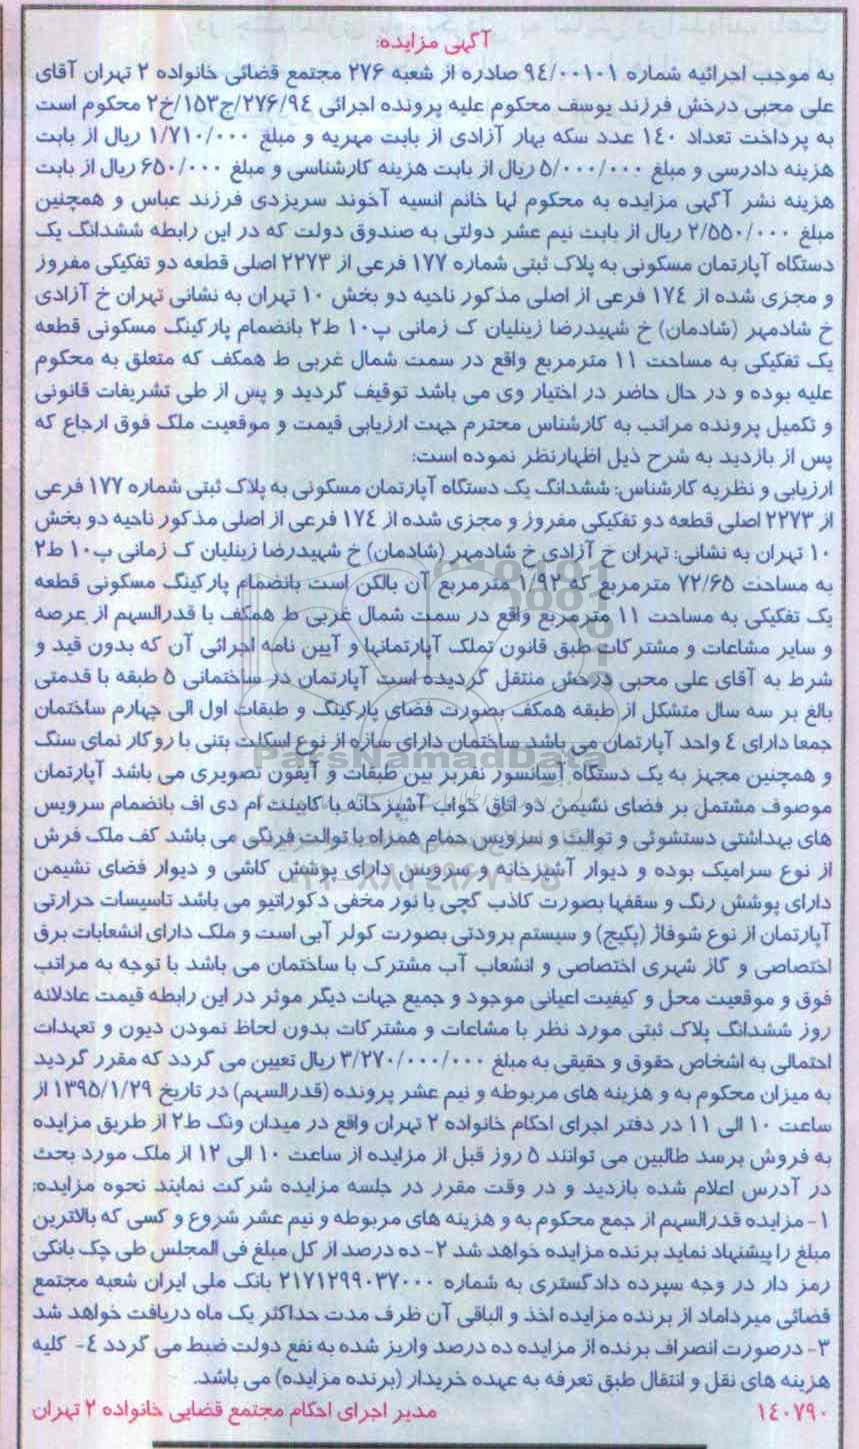 آگهی مزایده:
به موجب اجرائیه شماره ۹٤/۰۰۱۰۱ صادره از شعبه ۲۷۶ مجتمع قضائی خانواده ۲ تهران آقای
علی محبی درخش فرزند یوسف محکوم علیه پرونده اجرائی ۲۷۶/۹٤/ج۱۵۳/خ۲ محکوم است
به پرداخت تعداد ۱٤۰ عدد سکه بهار آزادی از بابت مهریه و مبلغ ۱/۷۱۰/۰۰۰ ریال از بابت
هزینه دادرسی و مبلغ ۵/۰۰۰/۰۰۰ ریال از بابت هزینه کارشناسی و مبلغ ۶۵۰/۰۰۰ ریال از بابت
هزینه نشر آگهی مزایده به محکوم لها خانم انسیه آخوند سریزدی فرزند عباس و همچنین
مبلغ ۲/۵۵۰/۰۰۰ ریال از بابت نیم عشر دولتی به صندوق دولت که در این رابطه ششدانگ یک
دستگاه آپارتمان مسکونی به پلاک ثبتی شماره ۱۷۷ فرعی از ۲۲۷۳ اصلی قطعه دو تفکیکی مفروز
و مجزی شده از ۱۷٤ فرعی از اصلی مذکور ناحیه دو بخش ۱۰ تهران به نشانی تهران خ آزادی
خ شادمهر (شادمان) خ شهیدرضا زینلیان ک زمانی پ۱۰ ط۲ بانضمام پارکینگ مسکونی قطعه
یک تفکیکی به مساحت ۱۱ مترمربع واقع در سمت شمال غربی ط همکف که متعلق به محکوم
علیه بوده و در حال حاضر در اختیار وی می باشد توقیف گردید و پس از طی تشریفات قانونی
و تکمیل پرونده مراتب به کارشناس محترم جهت ارزیابی قیمت و موقعیت ملک فوق ارجاع که
پس از بازدید به شرح ذیل اظهارنظر نموده است:
ارزیابی و نظریه کارشناس: ششدانگ یک دستگاه آپارتمان مسکونی به پلاک ثبتی شماره ۱۷۷ فرعی
از ۲۲۷۳ اصلی قطعه دو تفکیکی مفروز و مجزی شده از ۱۷٤ فرعی از اصلی مذکور ناحیه دو بخش
۱۰ تهران به نشانی: تهران خ آزادی خ شادمهر (شادمان) خ شهیدرضا زینلیان ک زمانی پ۱۰ ط۲
به مساحت ۷۲/۶۵ مترمربع که ۱/۹۲ مترمربع آن بالکن است بانضمام پارکینگ مسکونی قطعه
یک تفکیکی به مساحت ۱۱ مترمربع واقع در سمت شمال غربی ط همکف با قدرالسهم از عرصه
و سایر مشاعات و مشترکات طبق قانون تملک آپارتمانها و آیین نامه اجرائی آن که بدون قید و
شرط به آقای علی محبی درخش منتقل گردیده است آپارتمان در ساختمانی ۵ طبقه با قدمتی
بالغ بر سه سال متشکل از طبقه همکف بصورت فضای پارکینگ و طبقات اول الی چهارم ساختمان
جمعا دارای ٤ واحد آپارتمان می باشد ساختمان دارای سازه از نوع اسکلت بتنی با روکار نمای سنگ
و همچنین مجهز به یک دستگاه آسانسور نفربر بین طبقات و آیفون تصویری می باشد آپارتمان
موصوف مشتمل بر فضای نشیمن دو اتاق خواب آشپزخانه با کابینت ام دی اف بانضمام سرویس
های بهداشتی دستشوئی و توالت و سرویس حمام همراه با توالت فرنگی می باشد کف ملک فرش
از نوع سرامیک بوده و دیوار آشپزخانه و سرویس دارای پوشش کاشی و دیوار فضای نشیمن
دارای پوشش رنگ و سقفها بصورت کاذب گچی با نور مخفی دکوراتیو می باشد تاسیسات حرارتی
آپارتمان از نوع شوفاژ (پکیج) و سیستم برودتی بصورت کولر آبی است و ملک دارای انشعابات برق
اختصاصی و گاز شهری اختصاصی و انشعاب آب مشترک با ساختمان می باشد با توجه به مراتب
فوق و موقعیت محل و کیفیت اعیانی موجود و جمیع جهات دیگر موثر در این رابطه قیمت عادلانه
روز ششدانگ پلاک ثبتی مورد نظر با مشاعات و مشترکات بدون لحاظ نمودن دیون و تعهدات
احتمالی به اشخاص حقوق و حقیقی به مبلغ ۳/۲۷۰/۰۰۰/۰۰۰ ریال تعیین می گردد که مقرر گردید
به میزان محکوم به و هزینه های مربوطه و نیم عشر پرونده (قدرالسهم) در تاریخ ۱۳۹۵/۱/۲۹ از
ساعت ۱۰ الی ۱۱ در دفتر اجرای احکام خانواده ۲ تهران واقع در میدان ونک ط۲ از طریق مزایده
به فروش برسد طالبین می توانند ۵ روز قبل از مزایده از ساعت ۱۰ الی ۱۲ از ملک مورد بحث
در آدرس اعلام شده بازدید و در وقت مقرر در جلسه مزایده شرکت نمایند نحوه مزایده:
۱- مزایده قدرالسهم از جمع محکوم به و هزینه های مربوطه و نیم عشر شروع و کسی که بالاترین
مبلغ را پیشنهاد نماید برنده مزایده خواهد شد ۲- ده درصد از کل مبلغ فی المجلس طی چک بانکی
رمز دار در وجه سپرده دادگستری به شماره ۲۱۷۱۲۹۹۰۳۷۰۰۰ بانک ملی ایران شعبه مجتمع
قضائی میرداماد از برنده مزایده اخذ و الباقی آن ظرف مدت حداکثر یک ماه دریافت خواهد شد
۳- درصورت انصراف برنده از مزایده ده درصد واریز شده به نفع دولت ضبط می گردد ٤- کلیه
هزینه های نقل و انتقال طبق تعرفه به عهده خریدار (برنده مزایده) می باشد.
۱٤۰۷۹۰ مدیر اجرای احکام مجتمع قضایی خانواده ۲ تهران
ParsNamadData